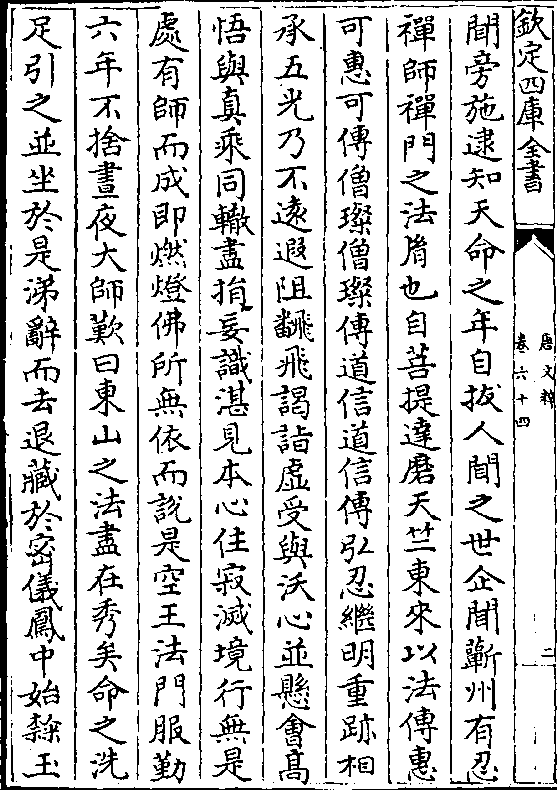 欽定四庫全書
唐文粹
卷六十四
二
聞旁施逮知天命之年自拔人間之世企聞蘄州有忍
禪師禪門之法胤也自菩提達磨天竺東來以法傳惠
可惠可傳僧璨僧璨傳道信道信傳弘忍繼明重跡相
承五光乃不遠遐阻翻飛謁詣虛受與沃心並懸會高
悟與真乘同轍盡捐妄識湛見本心住寂滅境行無是
處有師而成即燃燈佛所無依而說是空王法門服勤
六年不捨晝夜大師歎曰東山之法盡在秀矣命之洗
足引之並坐於是涕辭而去退藏於密儀鳳中始𨽻玉